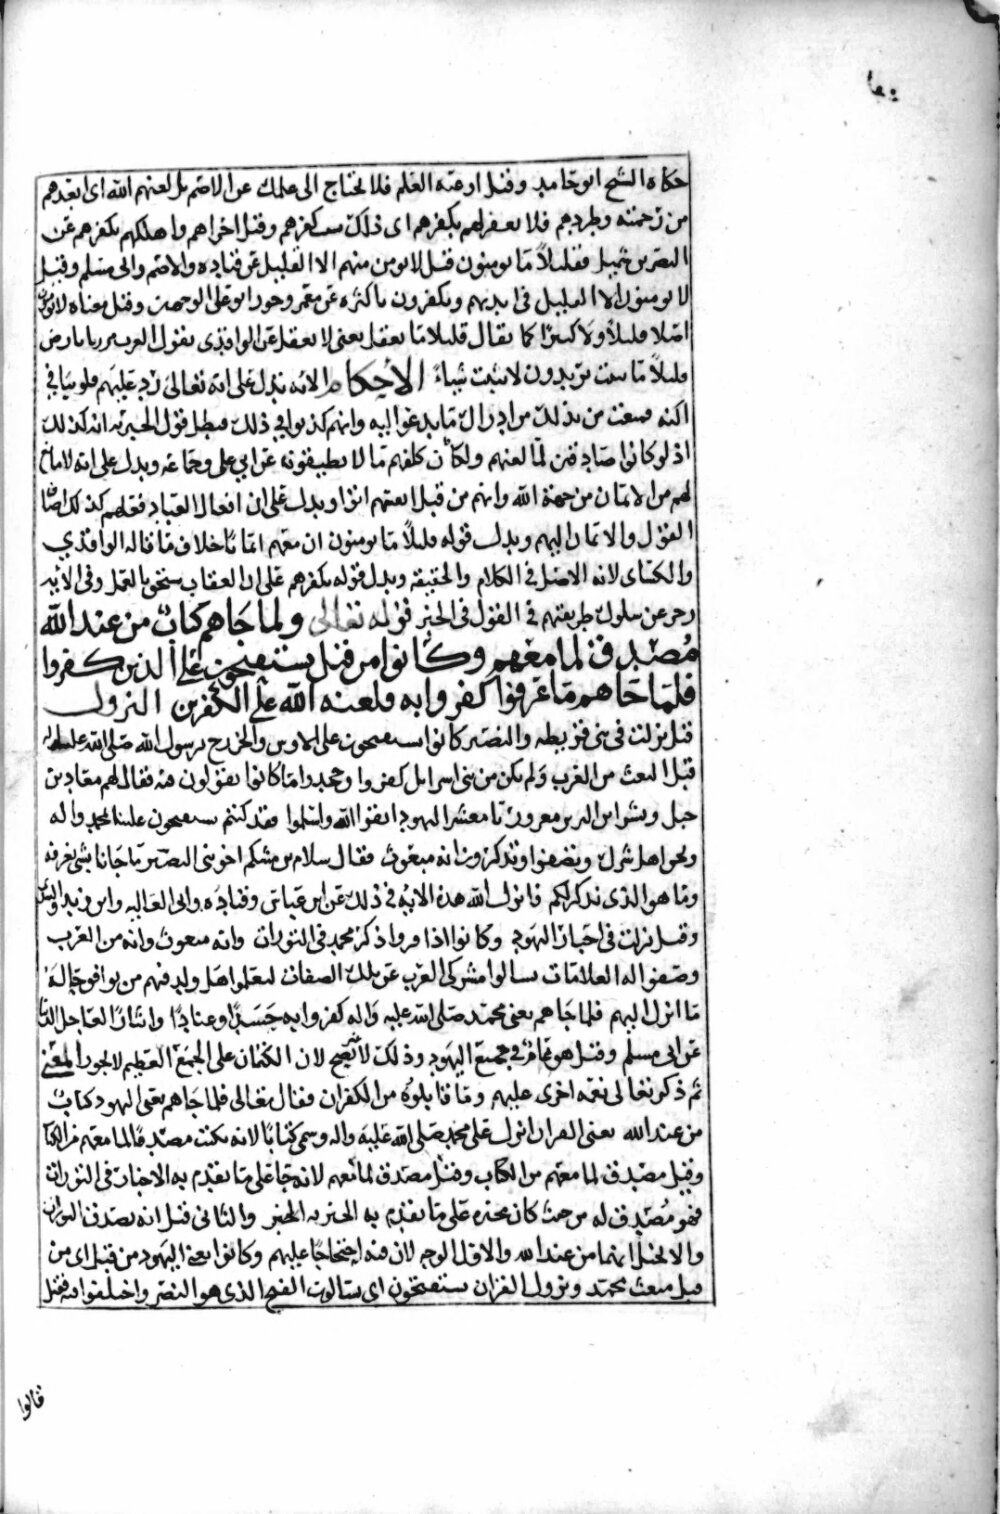 حكاه الشيخ ابو حامد وقيل اوعية العلم فلا نحتاج الى علمك عن الاصم بل لعنهم الله اى ابعدهم
من رحمته وطردهم فلا يغفر لهم بكفرهم اى ذلك بكفرهم وقيل اخزاهم واهلكهم بكفرهم عن
النضر بن شميل فقليلاً ما يومنون قيل لا يومن منهم الا القليل عن قتاده والاصم وابى مسلم وقيل
لا يومنون الا بقليل مما فى ايديهم ويكفرون باكثره عن معمر وجوز ابو على الوجهين وقيل معناه لا يومنون
اصلا قليلا ولا كثيرا كما يقال قليلا ما يعقل يعنى لا يعقل عن الواقدى يقول العرب مررنا بارض
قليلاً ما تنبت يريدون لا تنبت شياء الاحكام الايه تدل على انه تعالى رد عليهم قلوبنا فى
اكنه تمنعت من ذلك من ادراك ما يدعوا اليه وانهم كذبوا فى ذلك فبطل قول الجبريه انه كذلك
اذ لو كانوا صادقين لما لعنهم ولكان كلفهم ما لا يطيقونه عن ابي على وجماعه ويدل على انه لا مانع
لهم من الايمان من جهة الله وانهم من قبل انفسهم اتوا ويدل على ان افعال العباد فعلهم كذلك اضاف
القول والايمان اليهم ويدل قوله قليلاً ما يومنون ان معهم ايمانا خلاف ما قاله الواقدي
والكسائى لانه الاصل فى الكلام والحقيقه ويدل قوله بكفرهم على ان العقاب يستحق بالعمل وفى الايه
زجر عن سلوك طريقتهم فى القول فى الجبر قوله تعالى ولما جاهم كتاب من عند الله
مُصَدِّق لما معهم وكانوا من قبل يستفتحون على الذين كفروا
فلما جاهم ما عرفوا كفروا به فلعنه الله على الكفرين النزول
قيل نزلت فى بنى قريظه والنضير كانوا يستفتحون على الاوس والخزرج برسول الله صلى الله عليه واله
قبل المبعث من العرب ولم يكن من بنى اسرايل كفروا وجحدوا ما كانوا يقولون فيه فقال لهم معاذ بن
جبل وبشر ابن البرا بن معرور يا معشر اليهود اتقوا الله واسلموا فقد كنتم تستفتحون علينا بمحمد واله
ونحن اهل شرك وتصفوا وتذكرون انه مبعوث فقال سلام بن مشكم اخو بنى النضير ما جانا بشى نعرفه
وما هو الذى نذكر لكم فانزل الله هذه الايه فى ذلك عن ابن عباس وقتاده وابى العاليه وابن زيد والسدى
وقيل نزلت فى احبار اليهود وكانوا اذا قروا ذكر محمد فى التوراة وانه مبعوث وانه من العرب
وصفوا له العلامات سالوا مشركى العرب عن تلك الصفات ليعلموا هل ولد فيهم من يوافق حاله
ما انزل اليهم فلما جاهم يعنى محمد صلى الله عليه واله كفروا به حَسَدًا وعنادًا وايثارا لعاجل الدنيا
عن ابى مسلم وقيل هو تمام فى جميع اليهود وذلك لا يصح لان الكتمان على الجمع العظيم لا يجوز المعنى
ثم ذكر تعالى نعمه اخرى عليهم وما قابلوه من الكفران فقال تعالى فلما جاهم يعنى اليهود كتاب
من عند الله يعنى القران انزل على محمد صلى الله عليه واله وسمى كتابا لانه يكتب مصدقا لما معهم من الكتاب
وقيل مصدق لما معهم من الكتاب وقيل مصدق لما معهم لانه جا على ما تقدم به الاخبار فى التوراة
فهو مُصَدِّق له من حيث كان مخبره على ما تقدم به الخبر به الخبر والثانى قيل انه يصدق التوراة
والانجيل انهما من عند الله والاول اوجه لان فيه احتجاجا عليهم وكانوا يعنى اليهود من قبل اى من
قبل مبعث محمد ونزول القران يستفتحون اى يسالون الفتح الذى هو النصر واختلفوا فيه فقيل
قالوا